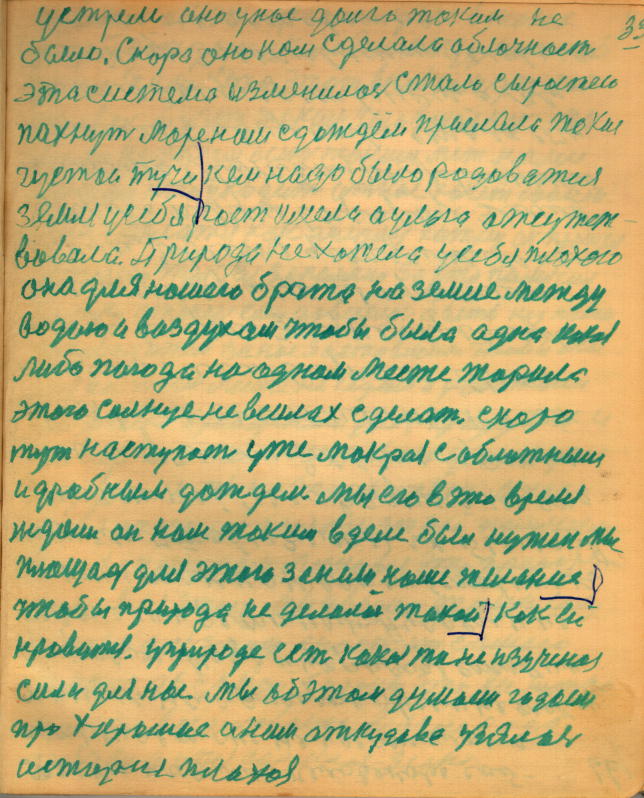 33
устрем оно унас долго таким не
было. Скоро оно нам сделала облочност
эта система изменилас стало сыростею
пахнут море нам сдождём прислала такие
густои тучи кем надо было родоватся
земли усебя рост имела
вовала. Природа не хотела усебя плохого
она для нашего брата на земле между
водою и воздухам чтобы была адна кокая
либо погода на одном месте жарила
этого солнце невсилах сделат. скоро
тут наступает уже мокрая с облотным
и дробным дождем мы его в это время
ждали он нам таким в деле был нужен мы
площад для этого заняли наше желание
чтобы природа не делала такои как еи
нравится. уприроде ест кокая то не изученоя
сила для нас. мы об этом думали годами
про хорошие а нам откудова взялас
история плохая